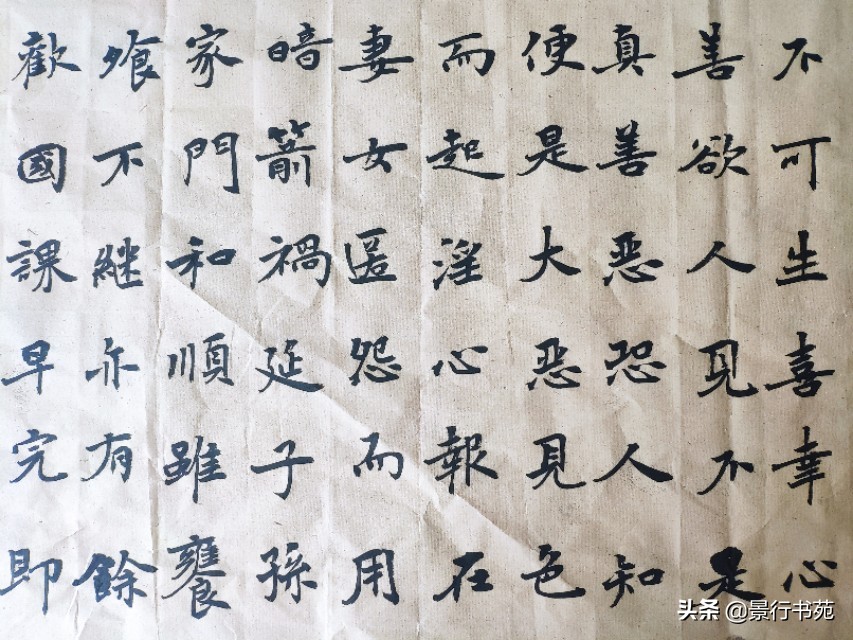 不可生喜幸心
善欲人見不是
真善恶恐人知
便是大恶見色
而起淫心報在
妻女匿怨而用
暗箭禍延子孫
家門和順雖饔
飧不継亦有餘
歡國課早完即
头条 @景行书苑